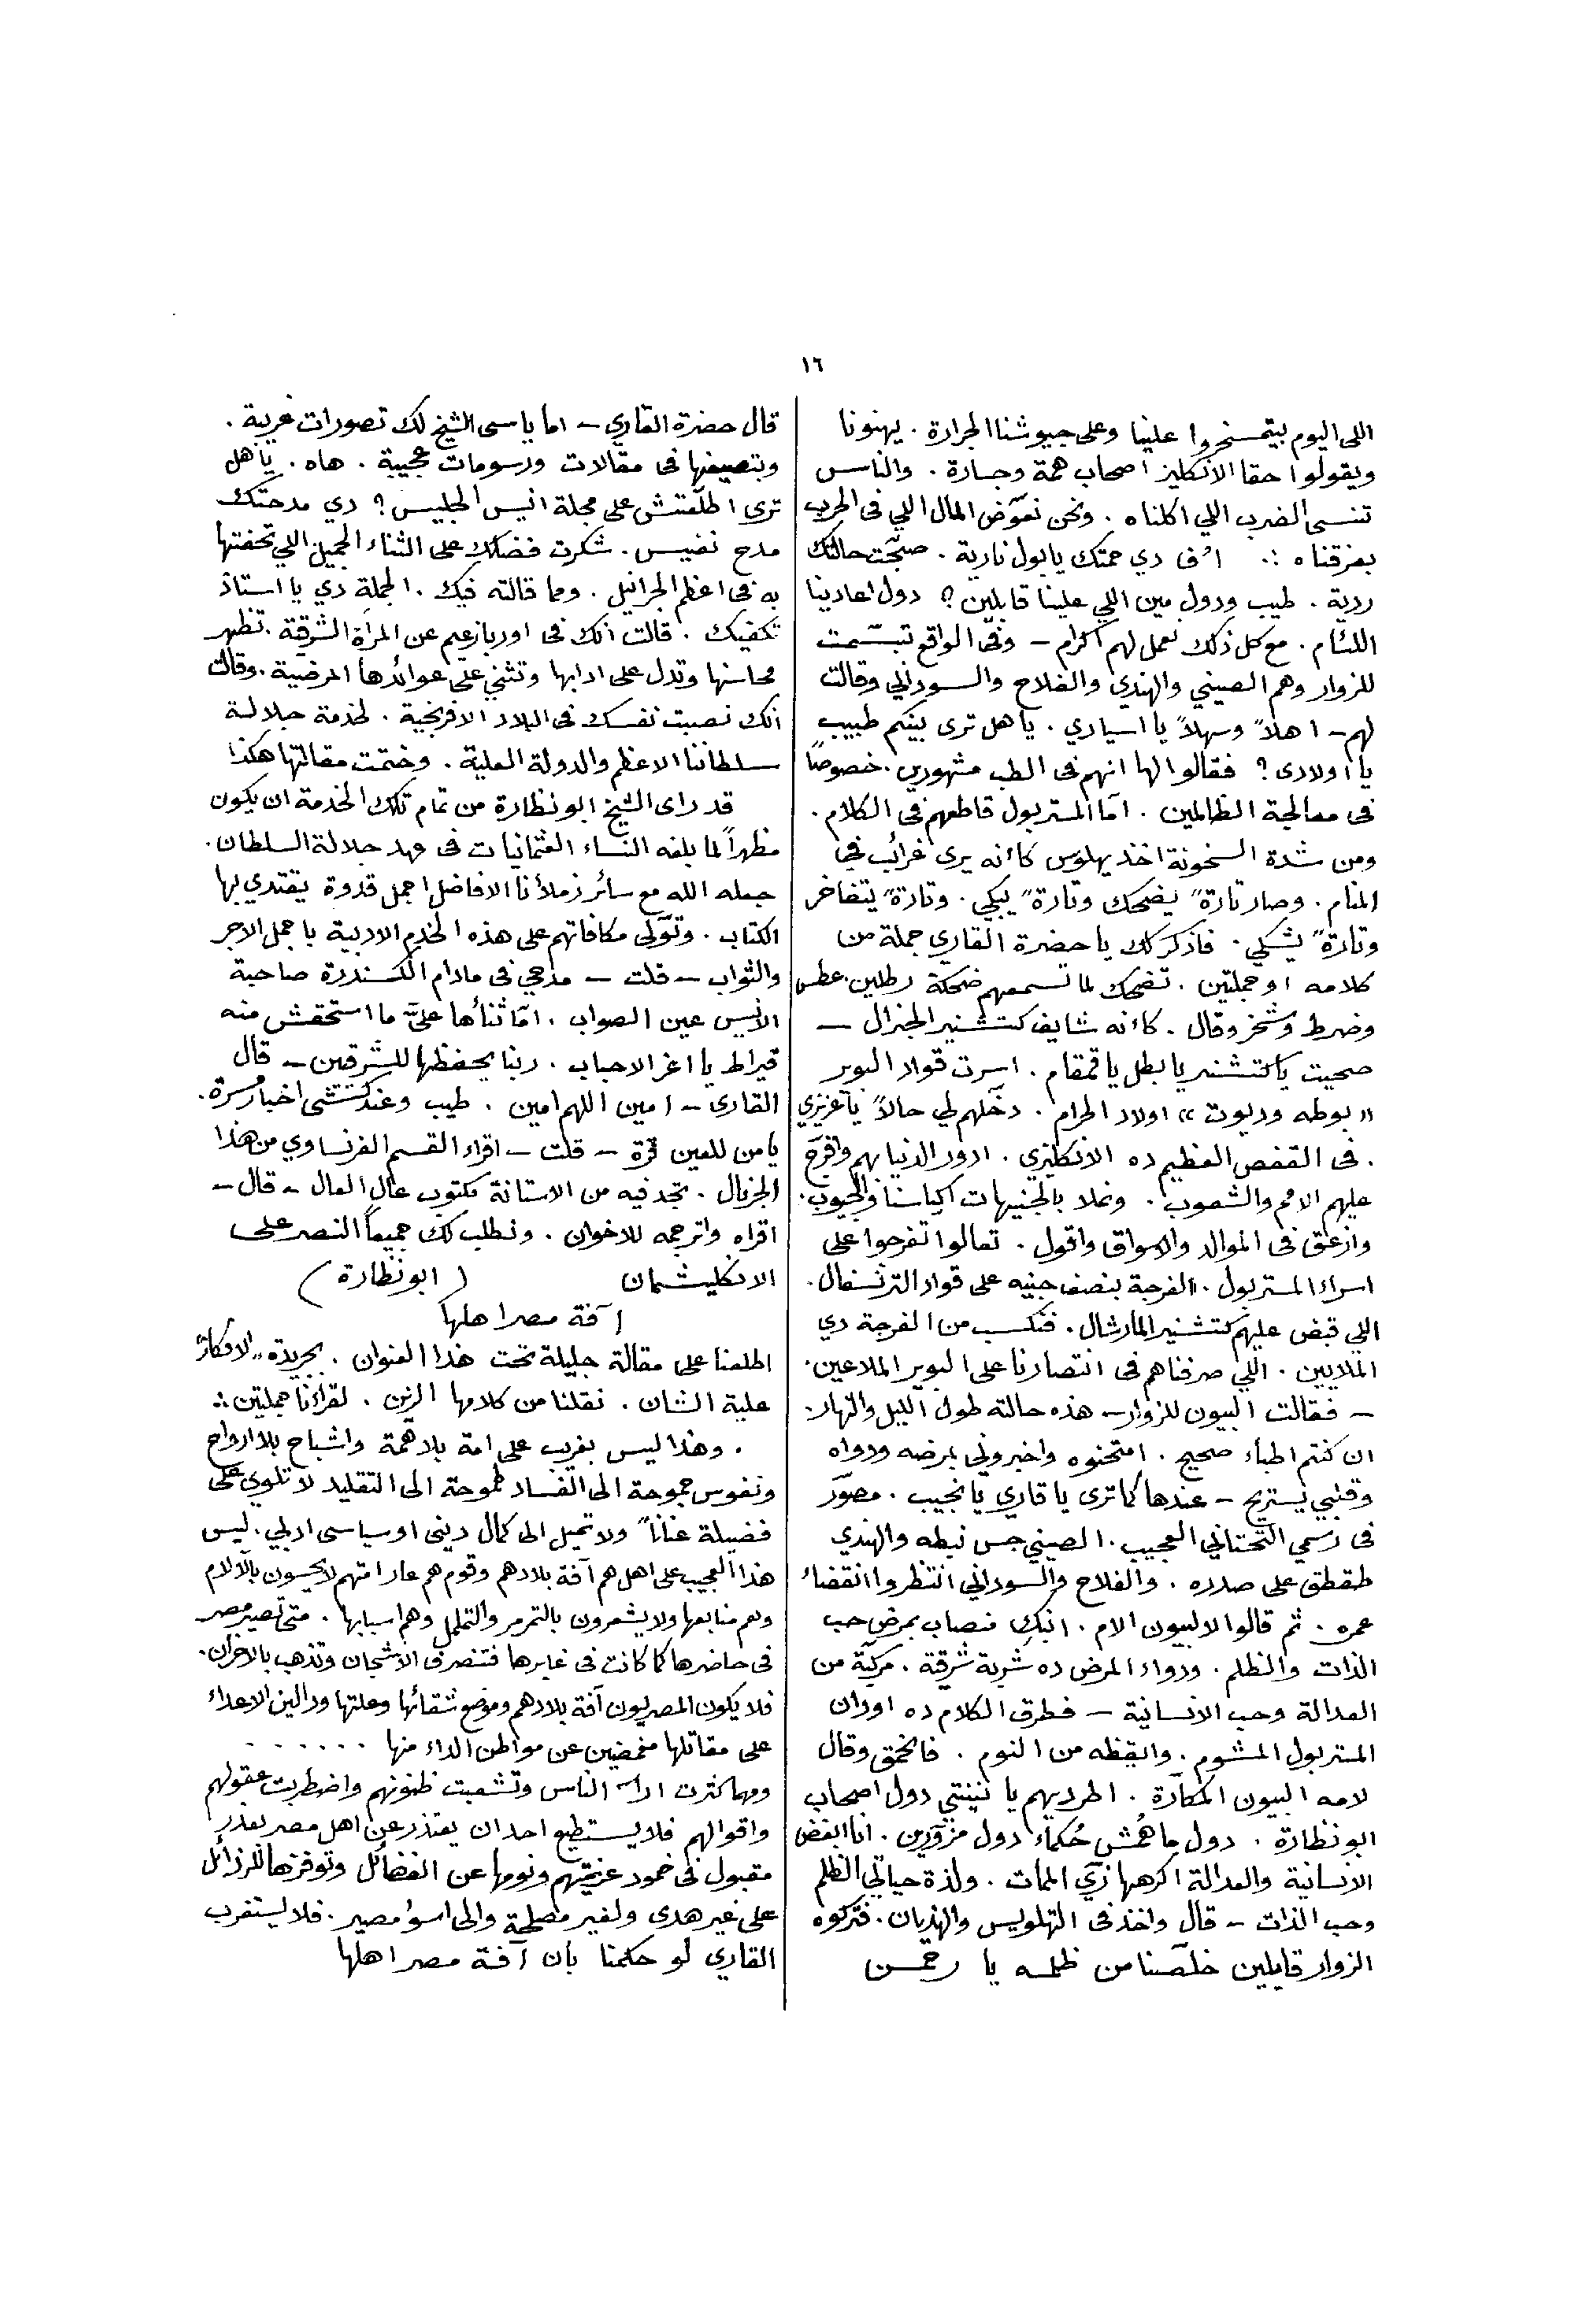 ١٦
اللى اليوم بيتمسخروا علينا وعلى جيوشنا الجرارة . يهنونا
ويقولوا حقا الانكليز اصحاب همة وجسارة . والناس
تنسى الضرب اللي اكلناه . ونحن نعوّض المال اللي فى الحرب
بعزقناه ∴ اُف دي حمتك يا بول نارية . صبّحت حالتك
ردية . طيب ودول مين اللي علينا قابلين ؟ دول اعادينا
اللئام . مع كل ذلك نعمل لهم اكرام – وفى الواقع تبسّمت
للزوار وهم الصيني والهندي والفلاح والسوداني وقالت
لهم – اهلاً وسهلاً يا اسيادي . يا هل ترى بينكم طبيب
يا اولادى ؟ فقالوا لها انهم فى الطب مشهورين . خصوصاً
فى معالجة الظالمين . امّا المستر بول قاطعهم فى الكلام .
ومن شدة السخونة اخذ يهلوس كأنه يرى غرائب في
المنام . وصار تارةً يضحك وتارةً يبكي . وتارةً يتفاخر
وتارةً يشكي . فاذكر لك يا حضرة القاري جملة من
كلامه او جملتين . تضحك لما تسمعهم ضحكة رطلين . عطس
وضرط وشخر وقال . كأنه شايف كتشنير الجنرال –
صحيت يا كتشنير يا بطل يا قمقام . اسرت قواد البوير
«بوطه وديوت» اولاد الحرام . دخّلهم لي حالاً يا عزيزي
. فى القفص العظيم ده الانكليزي . ادور الدنيا بهم وافرّج
عليهم الامم والشعوب . ونملا بالجنيهات اكياسنا والجيوب .
وازعق فى الموالد والاسواق واقول . تعالوا تفرجوا على
اسراء المستر بول . الفرجة بنصف جنيه على قواد الترنسفال .
اللي قبض عليهم كتشنير المارشال . فنكسب من الفرجة دي
الملايين . اللي صرفناهم فى انتصارنا على البوير الملاعين .
– فقالت البيون للزوار – هذه حالته طول الليل والنهار .
ان كنتم اطباء صحيح . امتحنوه واخبروني بمرضه ودواه
وقلبي يستريح – عندها كما ترى يا قاري يا نجيب . مصوّر
فى رسمي التحتاني العجيب . الصيني جس نبطه والهندي
طقطق على صدره . والفلاح والسوداني انتظروا انقضاء
عمره . ثم قالوا لالبيون الام . ابنك مصاب بمرض حب
الذات والظلم . ودواء المرض ده شربة شرقية . مركّبة من
العدالة وحب الانسانية – فطرق الكلام ده اودان
المستر بول المشوم . وايقظه من النوم . فانحمق وقال
لامه البيون المكّارة . اطرديهم يا نينتي دول اصحاب
ابو نظارة . دول ما همش حُكماء دول مزوّرين . انا ابغض
الانسانية والعدالة اكرهها زي الممات . ولذة حياتي الظلم
وحب الذات – قال واخذ فى التهلويس والهذيان . فتركوه
الزوار قايلين خلّصنا من ظلمه يا رحمن
قال حضرة القاري – اما يا سى الشيخ لك تصورات غريبة .
وبتصيغها فى مقالات ورسومات عجيبة . هاه . يا هل
ترى اطلّعتش على مجلة انيس الجليس ؟ دي مدحتك
مدح نفيس . شكرت فضلك على الثناء الجميل اللي تحفتها
به فى اعظم الجرانيل . ومما قالته فيك . الجملة دي يا استاذ
تكفيك . قالت انك فى اوربا زعيم عن المرأة الشرقية . تظهر
محاسنها وتدل على ادابها وتثني على عوائدها المرضية . وقالت
انك نصبت نفسك فى البلاد الافرنجية . لخدمة جلالة
سلطاننا الاعظم والدولة العلية . وختمت مقالتها هكذا
قد راى الشيخ ابو نظارة من تمام تلك الخدمة ان يكون
مظهراً لما بلغه النساء العثمانيات فى عهد جلالة السلطان .
جعله الله مع سائر زملأنا الافاضل اجمل قدوة يقتدي بها
الكتاب . وتوّلى مكافاتهم على هذه الخدم الادبية باجمل الاجر
والثواب – قلت – مدحي فى مادام الكسندرة صاحبة
الانيس عين الصواب . امّا ثنأها عليّ ما استحقش منه
قيراط يا اعز الاحباب . ربنا يحفظها للشرقين – قال
القارى – امين اللهم امين . طيب وعندكشى اخبار مسرة .
يا من للعين قرة – قلت – اقراء القسم الفرنساوي من هذا
الجرنال . تجد فيه من الاستانة مكتوب عال العال – قال –
اقراه واترجمه للاخوان . ونطلب لك جميعاً النصر على
الانكليشمان (ابو نظارة)
آفة مصر اهلها
اطلعنا على مقالة جليلة تحت هذا العنوان . بجريدة "الافكار"
علية الشان . نقلنا من كلامها الرزين . لقراءنا جملتين ∴
. وهذا ليس بغريب على امة بلا همة واشباح بلا ارواح
ونفوس جموحة الى الفساد طموحة الى التقليد لا تلوي على
فضيلة عناناً ولا تميل الى كمال دينى او سياسى ادبي . ليس
هذا العجيب على اهل هم آفة بلادهم وقوم هم عار امتهم لا يحسون بالآلام
وهم منابعها ولا يشعرون بالتمرمر والتململ وهم اسبابها . متى تصير مصر
فى حاضرها كما كانت فى غابرها فتنصرف الاشجان وتذهب بالاحزان .
فلا يكون المصريون آفة بلادهم وموضع شقائها وعلتها ودالين الاعداء
على مقاتلها مغمضين عن مواطن الداء منها . . . . . .
ومهما كثرت اراء الناس وتشعبت ظنونهم واضطربت عقولهم
واقوالهم فلا يستطيع احد ان يعتذر عن اهل مصر بعذر
مقبول فى خمود عزيمتهم ونومها عن الفضائل وتوفزها للرذائل
على غير هدى ولغير مصلحة والى اسوء مصير . فلا يستغرب
القاري لو حكمنا بأن آفة مصر اهلها